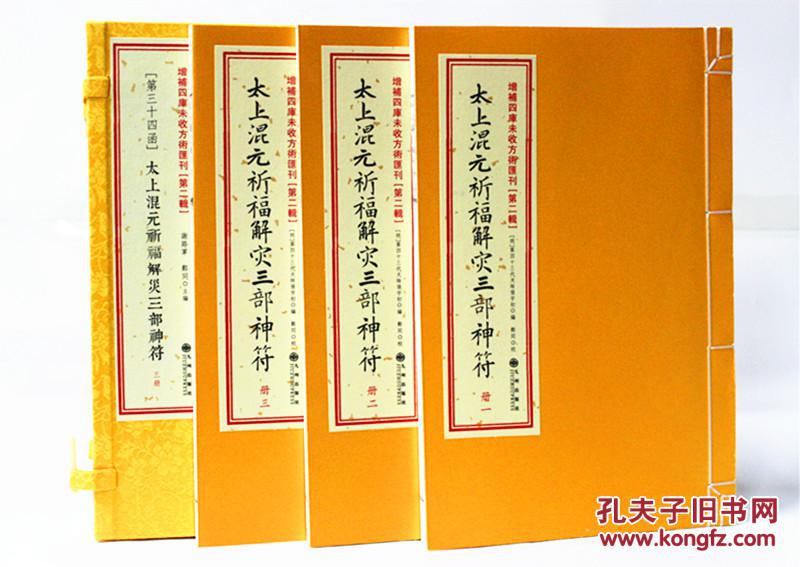 增補四庫未收方術匯刊［第二輯］
［第三十四函］太上混元祈福解災三部神符
鄭同◎主編
三册
九州出版社
增補四庫未收方術匯刊［第二輯］
太上混元祈福解灾三部神符
册三
九州出版社
增補四庫未收方術匯刊［第二輯］
太上混元祈福解灾三部神符
［明］第四十三代天師張宇初◎編 鄭同◎校
册二
九州出版社
增補四庫未收方術匯刊［第二輯］
太上混元祈福解灾三部神符
［明］第四十三代天師張宇初◎編 鄭同◎校
册一
九州出版社
孔夫子旧书网
www.kongfz.com